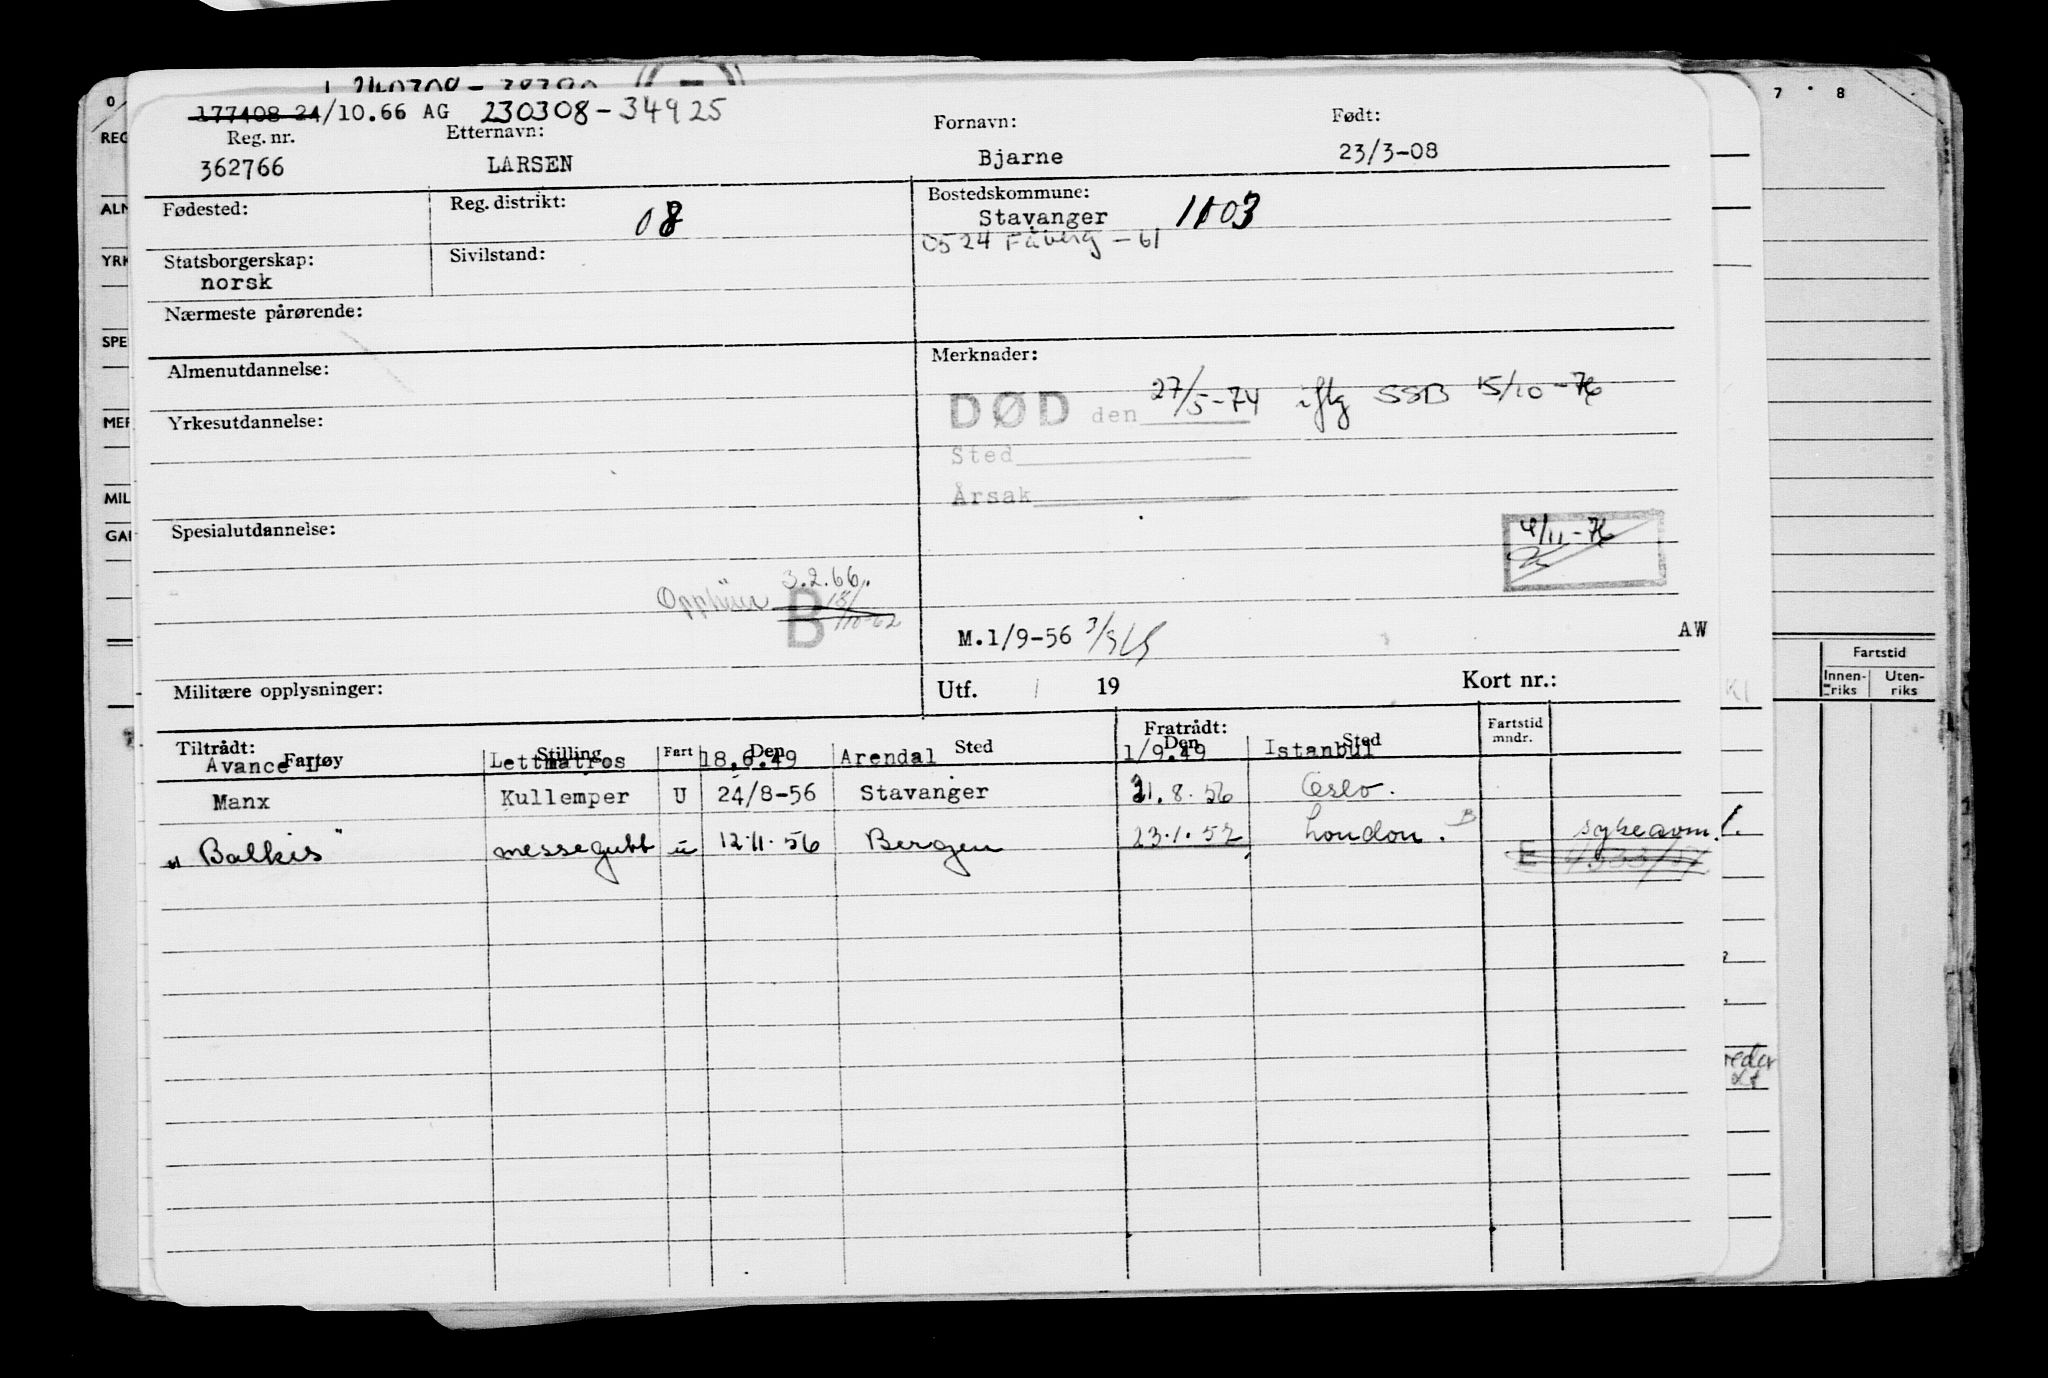 177408 24/10.66 AG 230308-34925
Reg. nr. Etternavn: Fornavn: Født:
362766 LARSEN Bjarne 23/3-08
Fødested: Reg. distrikt: 08 Bostedskommune:
Stavanger 1103
0524 Fåberg -61
Statsborgerskap: Sivilstand:
norsk
Nærmeste pårørende:
Almenutdannelse: Merknader:
DØD den 27/5-74 iflg SSB 15/10-76
Yrkesutdannelse:
Sted
Årsak
Spesialutdannelse:
4/11-76
3.2.66
B
M.1/9-56
AW
Militære opplysninger: Utf. 19 Kort nr.:
Tiltrådt: Fratrådt: Fartstid mndr.
Fartøy Stilling Fart Den Sted Den Sted
Avance Lettmatros 18.6.49 Arendal 1/9.49 Istanbul
Manx Kullemper U 24/8-56 Stavanger 31.8.56 Oslo.
"Balkis" messegutt u 12.11.56 Bergen 23.1.57 London. B sykeavm.
E
REG
ALN
YRK
SPE
MER
MIL
GAR
7 8
Fartstid
Innen-riks Uten-riks